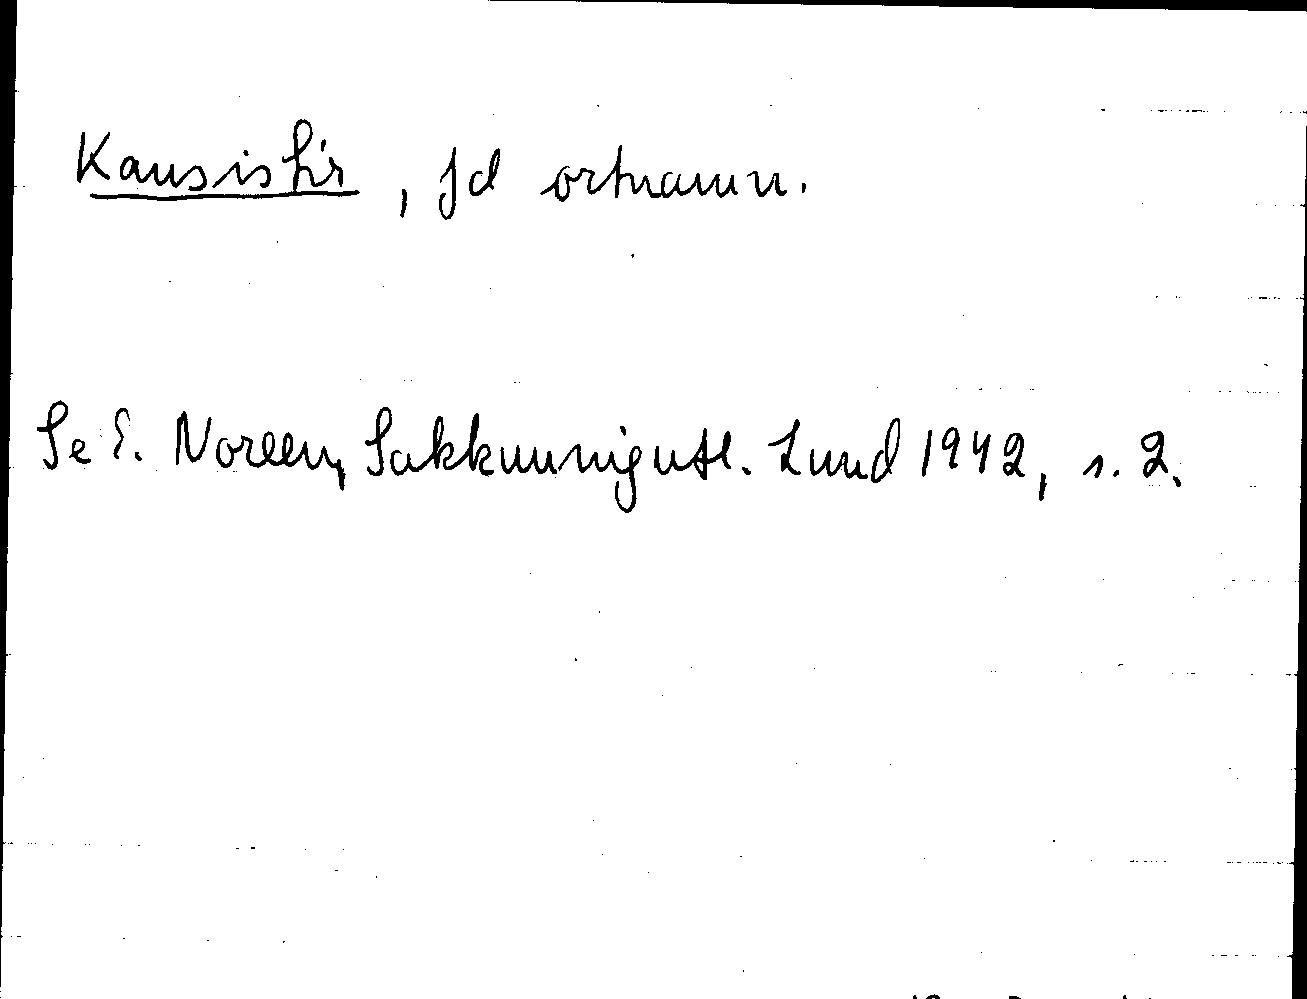 Kausistir, fd ortnamn.
Se E. Noreen, Sakkunnigutl. Lund 1942, s. 2.